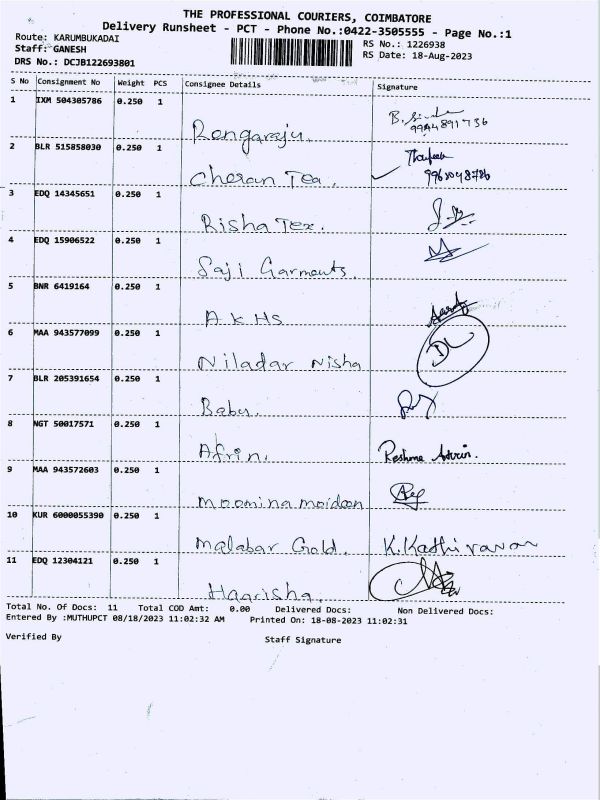 THE PROFESSIONAL COURIERS, COIMBATORE
Delivery Runsheet - PCT - Phone No.:0422-3505555 - Page No.:1
Route: KARUMBUKADAI
RS No.: 1226938
Staff: GANESH
RS Date: 18-Aug-2023
DRS No.: DCJB122693801
S No Consignment No Weight PCS Consignee Details Signature
1 IXM 504305786 0.250 1
Rengaraju. 9944891736
2 BLR 515858030 0.250 1
Cheran Tea.
3 EDQ 14345651 0.250 1
Risha Tex.
4 EDQ 15906522 0.250 1
Saji Garments.
5 BNR 6419164 0.250 1
A.K HS
6 MAA 943577099 0.250 1
Niladar Nisha
7 BLR 205391654 0.250 1
Babu.
8 NGT 50017571 0.250 1
Afrin. Reshma
9 MAA 943572603 0.250 1
moomina moideen
10 KUR 6000055390 0.250 1
Malabar Gold. K.Kathiravan
11 EDQ 12304121 0.250 1
Haarisha.
Total No. Of Docs: 11 Total COD Amt: 0.00 Delivered Docs: Non Delivered Docs:
Entered By :MUTHUPCT 08/18/2023 11:02:32 AM Printed On: 18-08-2023 11:02:31
Verified By Staff Signature